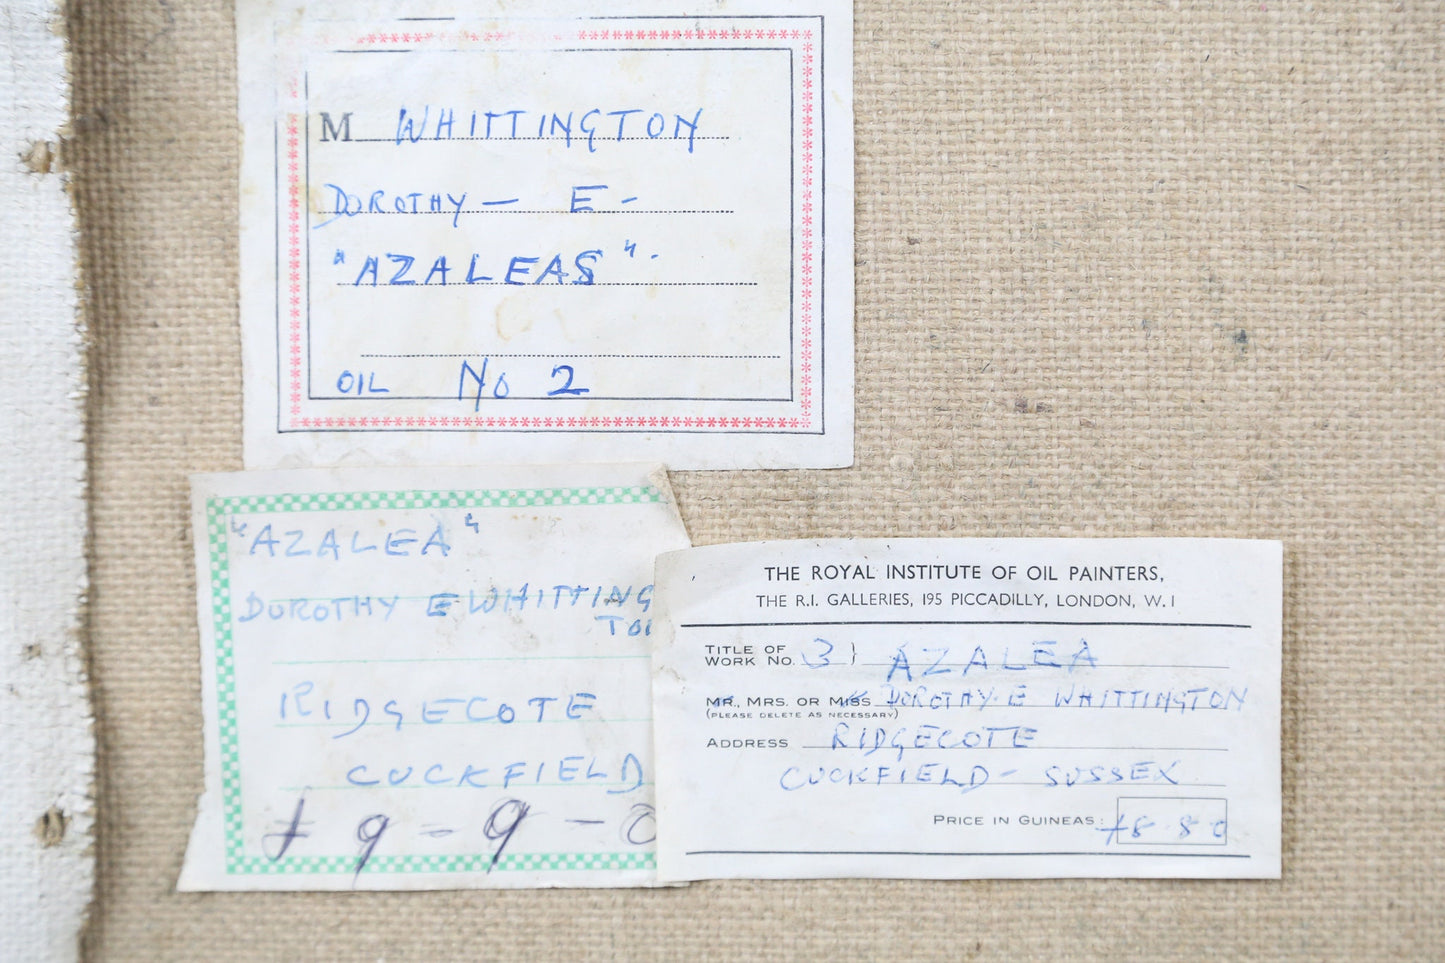 M WHITTINGTON
DOROTHY — E -
"AZALEAS".
OIL No 2
"AZALEA"
DOROTHY E WHITTING
TON
RIDGECOTE
CUCKFIELD
£ 9 - 9 - 0
THE ROYAL INSTITUTE OF OIL PAINTERS,
THE R.I. GALLERIES, 195 PICCADILLY, LONDON, W.1
TITLE OF
WORK No. 3} AZALEA
MR., MRS. OR MISS DOROTHY. E WHITTINGTON
(PLEASE DELETE AS NECESSARY)
ADDRESS RIDGECOTE
CUCKFIELD - SUSSEX
PRICE IN GUINEAS: £8 8 0